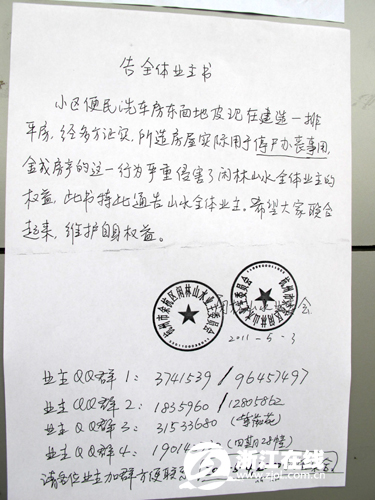 告全体业主书
小区便民洗车房东面地皮现在建造一排
平房,经多方证实,所造房屋实际用于停尸办丧事用,
金成房产的这一行为严重侵害了闲林山水全体业主的
权益,此书特此通告山水全体业主。希望大家联合
起来,维护自身权益。
杭州市余杭区闲林山水业主委员会
杭州市余杭区闲林山水业主委员会
会
2011-5-3
业主QQ群1: 3741539 / 96457497
业主QQ群2: 1835960 / 12805862
业主QQ群3: 31533680
业主QQ群4: 19014 (四期28幢)
请各位业主加群方便联
浙江在线
www.zjol.com.cn